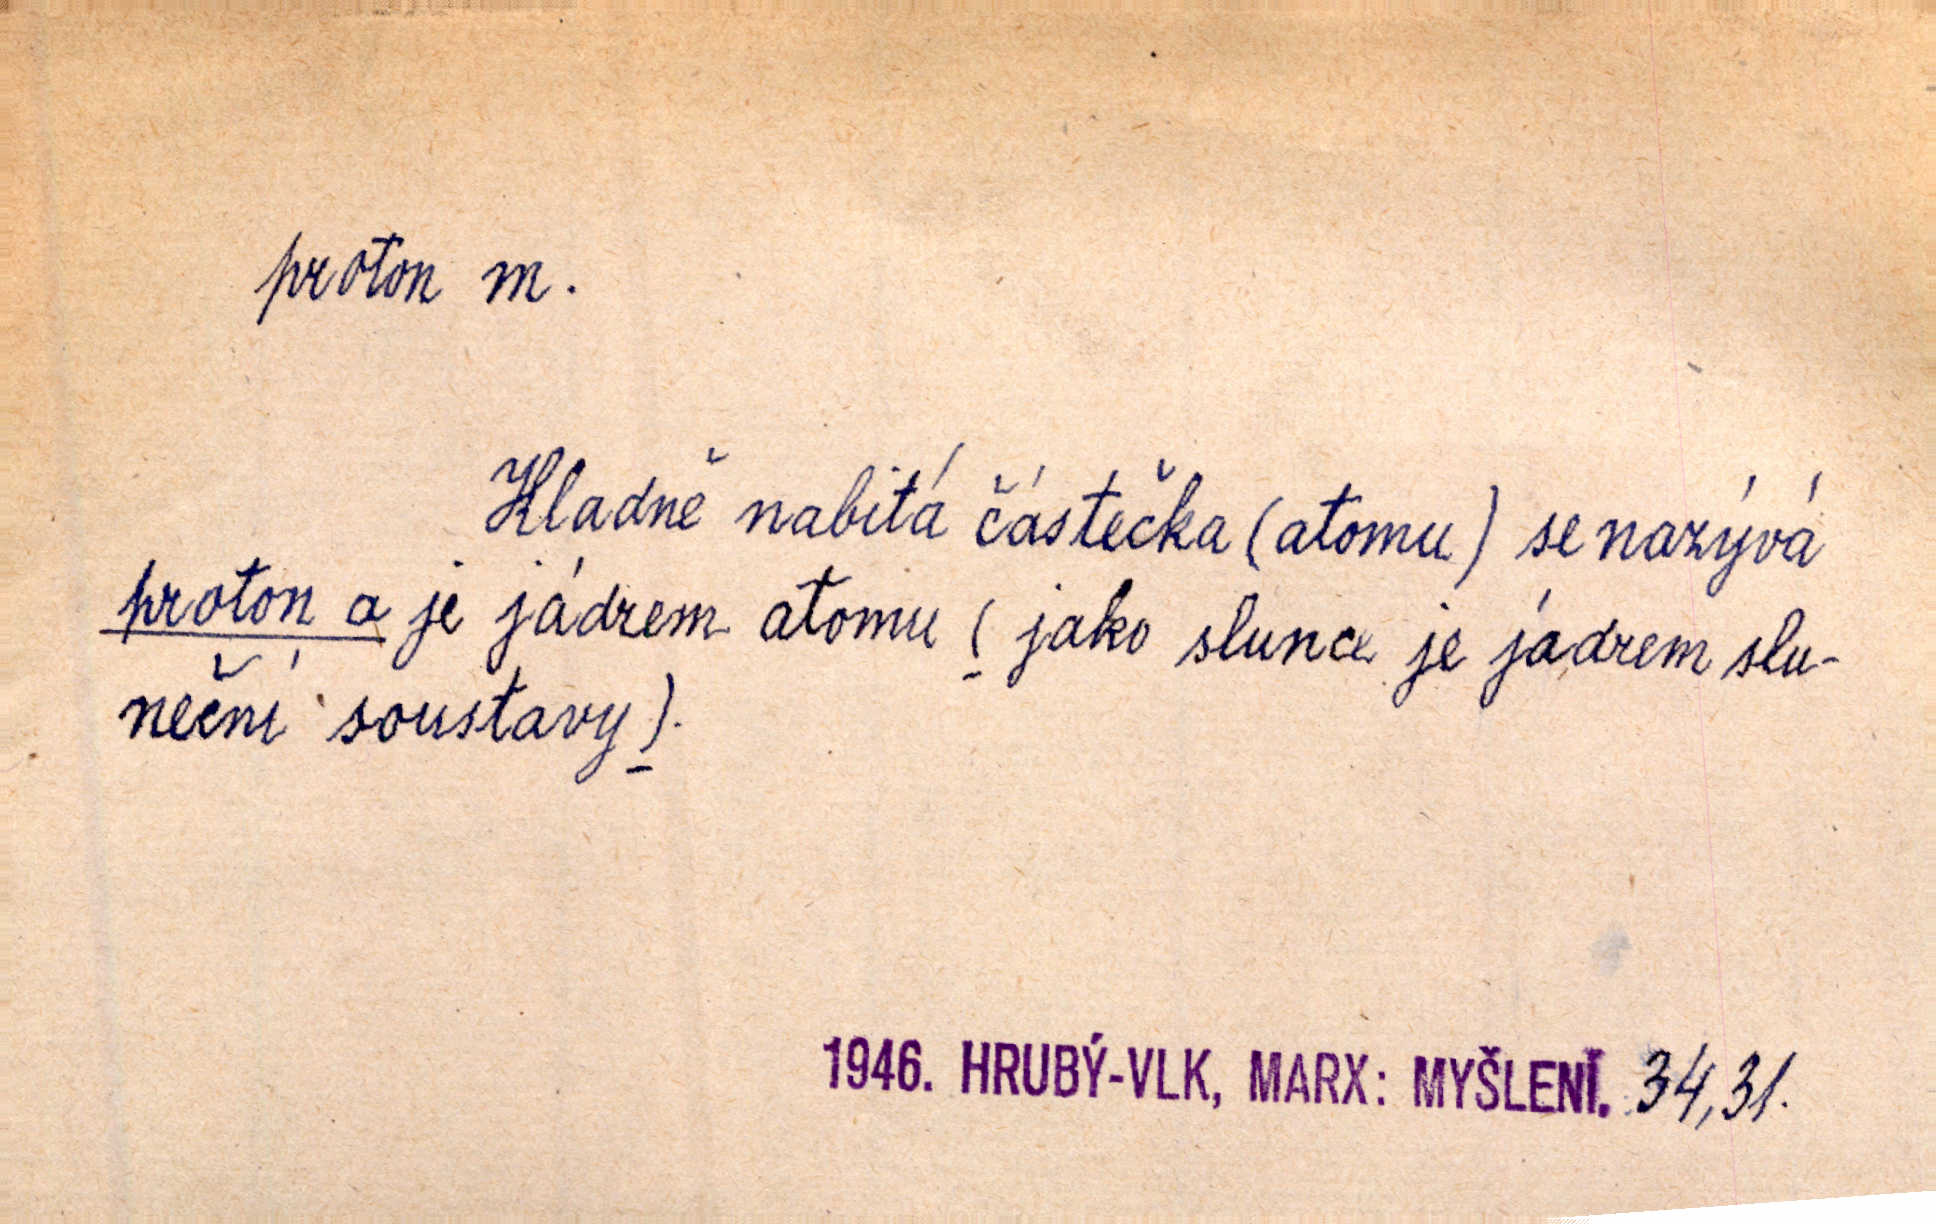 proton m.
Kladně nabitá částečka (atomu) se nazývá
proton a je jádrem atomu (jako slunce je jádrem slu-
neční soustavy).
1946. HRUBÝ-VLK, MARX: MYŠLENÍ. 34,31.